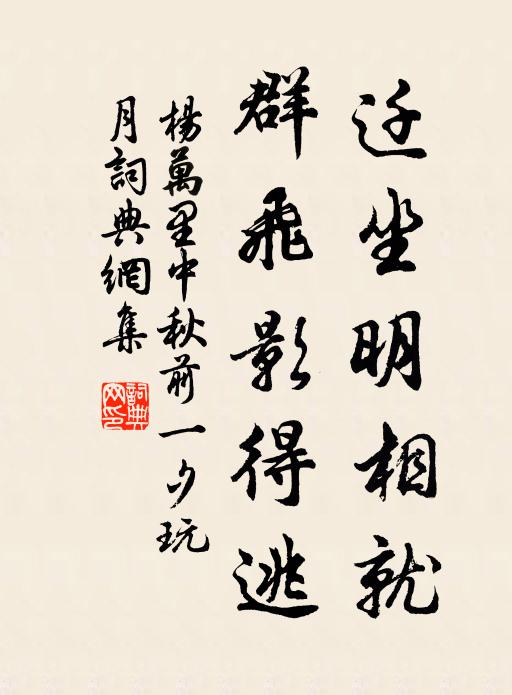 迁坐明相就
群飛影得逃
楊萬里中秋前一夕玩
月詞典網集
詞典
网印